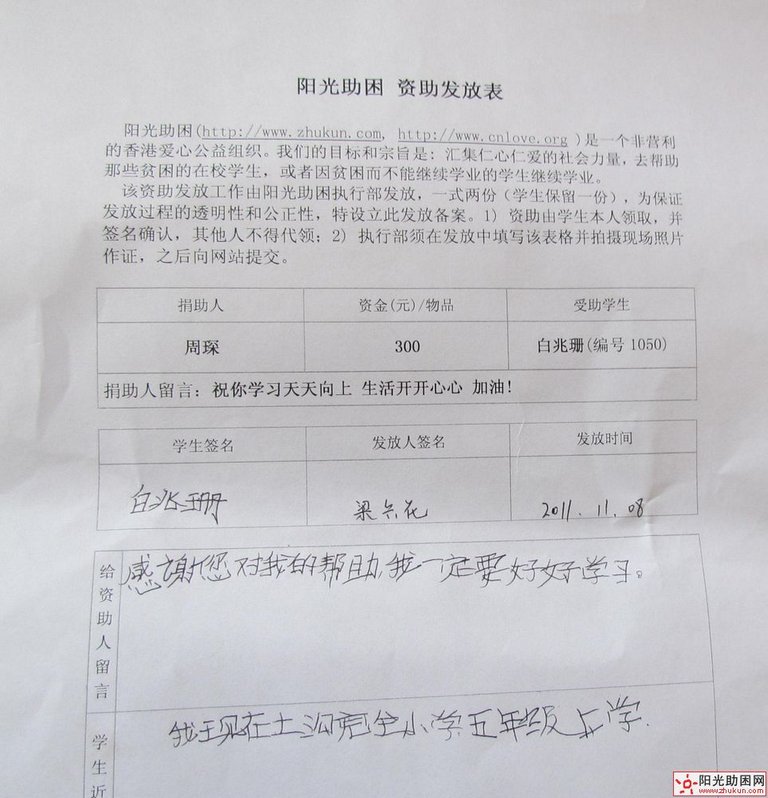 阳光助困 资助发放表
阳光助困(http://www.zhukun.com, http://www.cnlove.org )是一个非营利
的香港爱心公益组织。我们的目标和宗旨是: 汇集仁心仁爱的社会力量, 去帮助
那些贫困的在校学生, 或者因贫困而不能继续学业的学生继续学业。
该资助发放工作由阳光助困执行部发放, 一式两份(学生保留一份), 为保证
发放过程的透明性和公正性, 特设立此发放备案。1) 资助由学生本人领取, 并
签名确认, 其他人不得代领; 2) 执行部须在发放中填写该表格并拍摄现场照片
作证, 之后向网站提交。
捐助人 资金(元)/物品 受助学生
周琛 300 白兆珊(编号 1050)
捐助人留言: 祝你学习天天向上 生活开开心心 加油!
学生签名 发放人签名 发放时间
白兆珊 梁 花 2011.11.08
给资助人留言
感谢您对我的帮助,我一定要好好学习。
学生近
我现在土沟 全小学五年级上学.
阳光助困网
www.zhukun.com